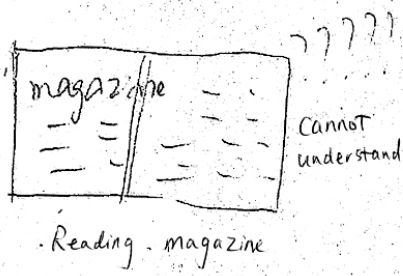 ?????
magazine
Cannot
understand
.Reading. magazine